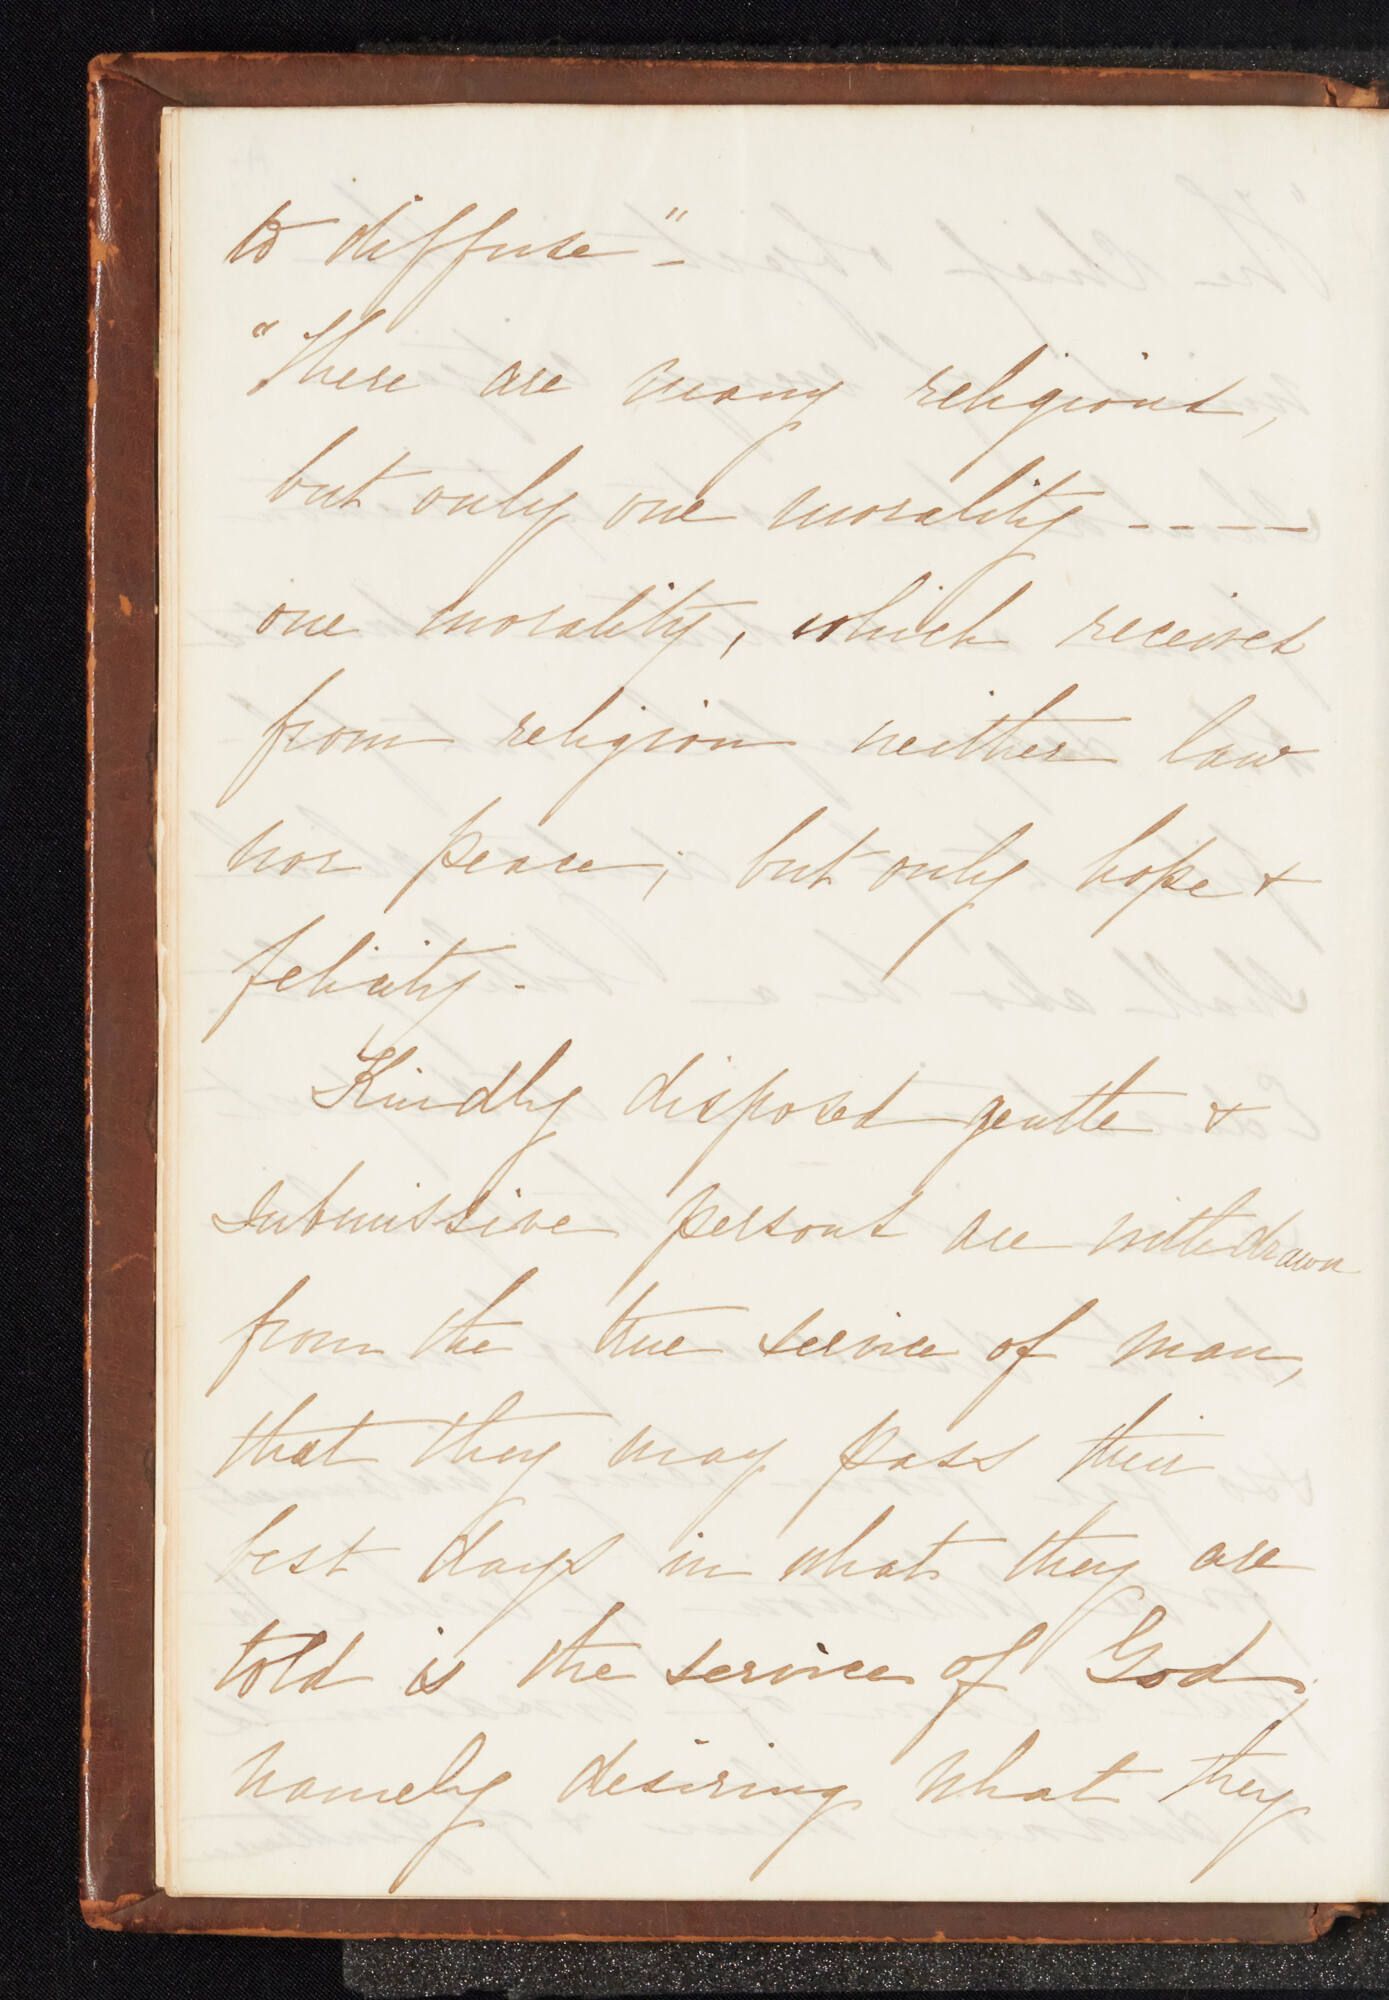 to diffuse" -
"There are many religions,
but only one morality - - - -
one morality, which receives
from religion neither law
nor peace; but only hope &
felicity -
Kindly disposed gentle &
submissive persons are withdrawn
from the true service of man,
that they may pass their
best days in what they are
told is the service of God,
namely desiring what they